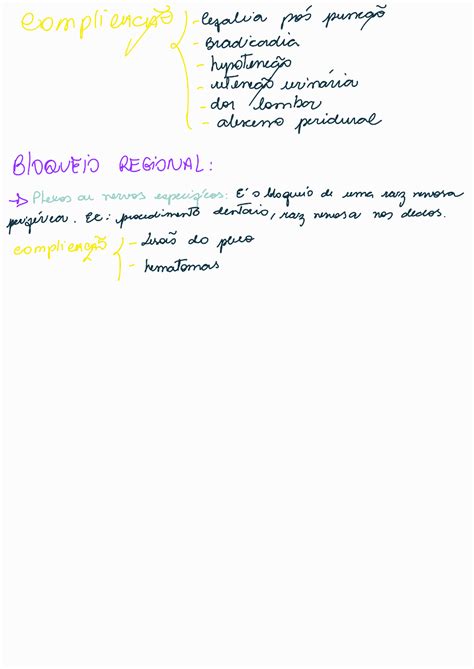 complicação
- cefaleia pós punção
- Bradicardia
- hypotenção
- retenção urinária
- dor lombar
- abscesso peridural
BloQUEIO REGIONAL:
→ Plexos ou nervos especificos: É o bloqueio de uma raiz nervosa
periférica. Ex: procedimento dentario, raiz nervosa nos dedos.
complicação
- Lesão do plexo
- hematomas